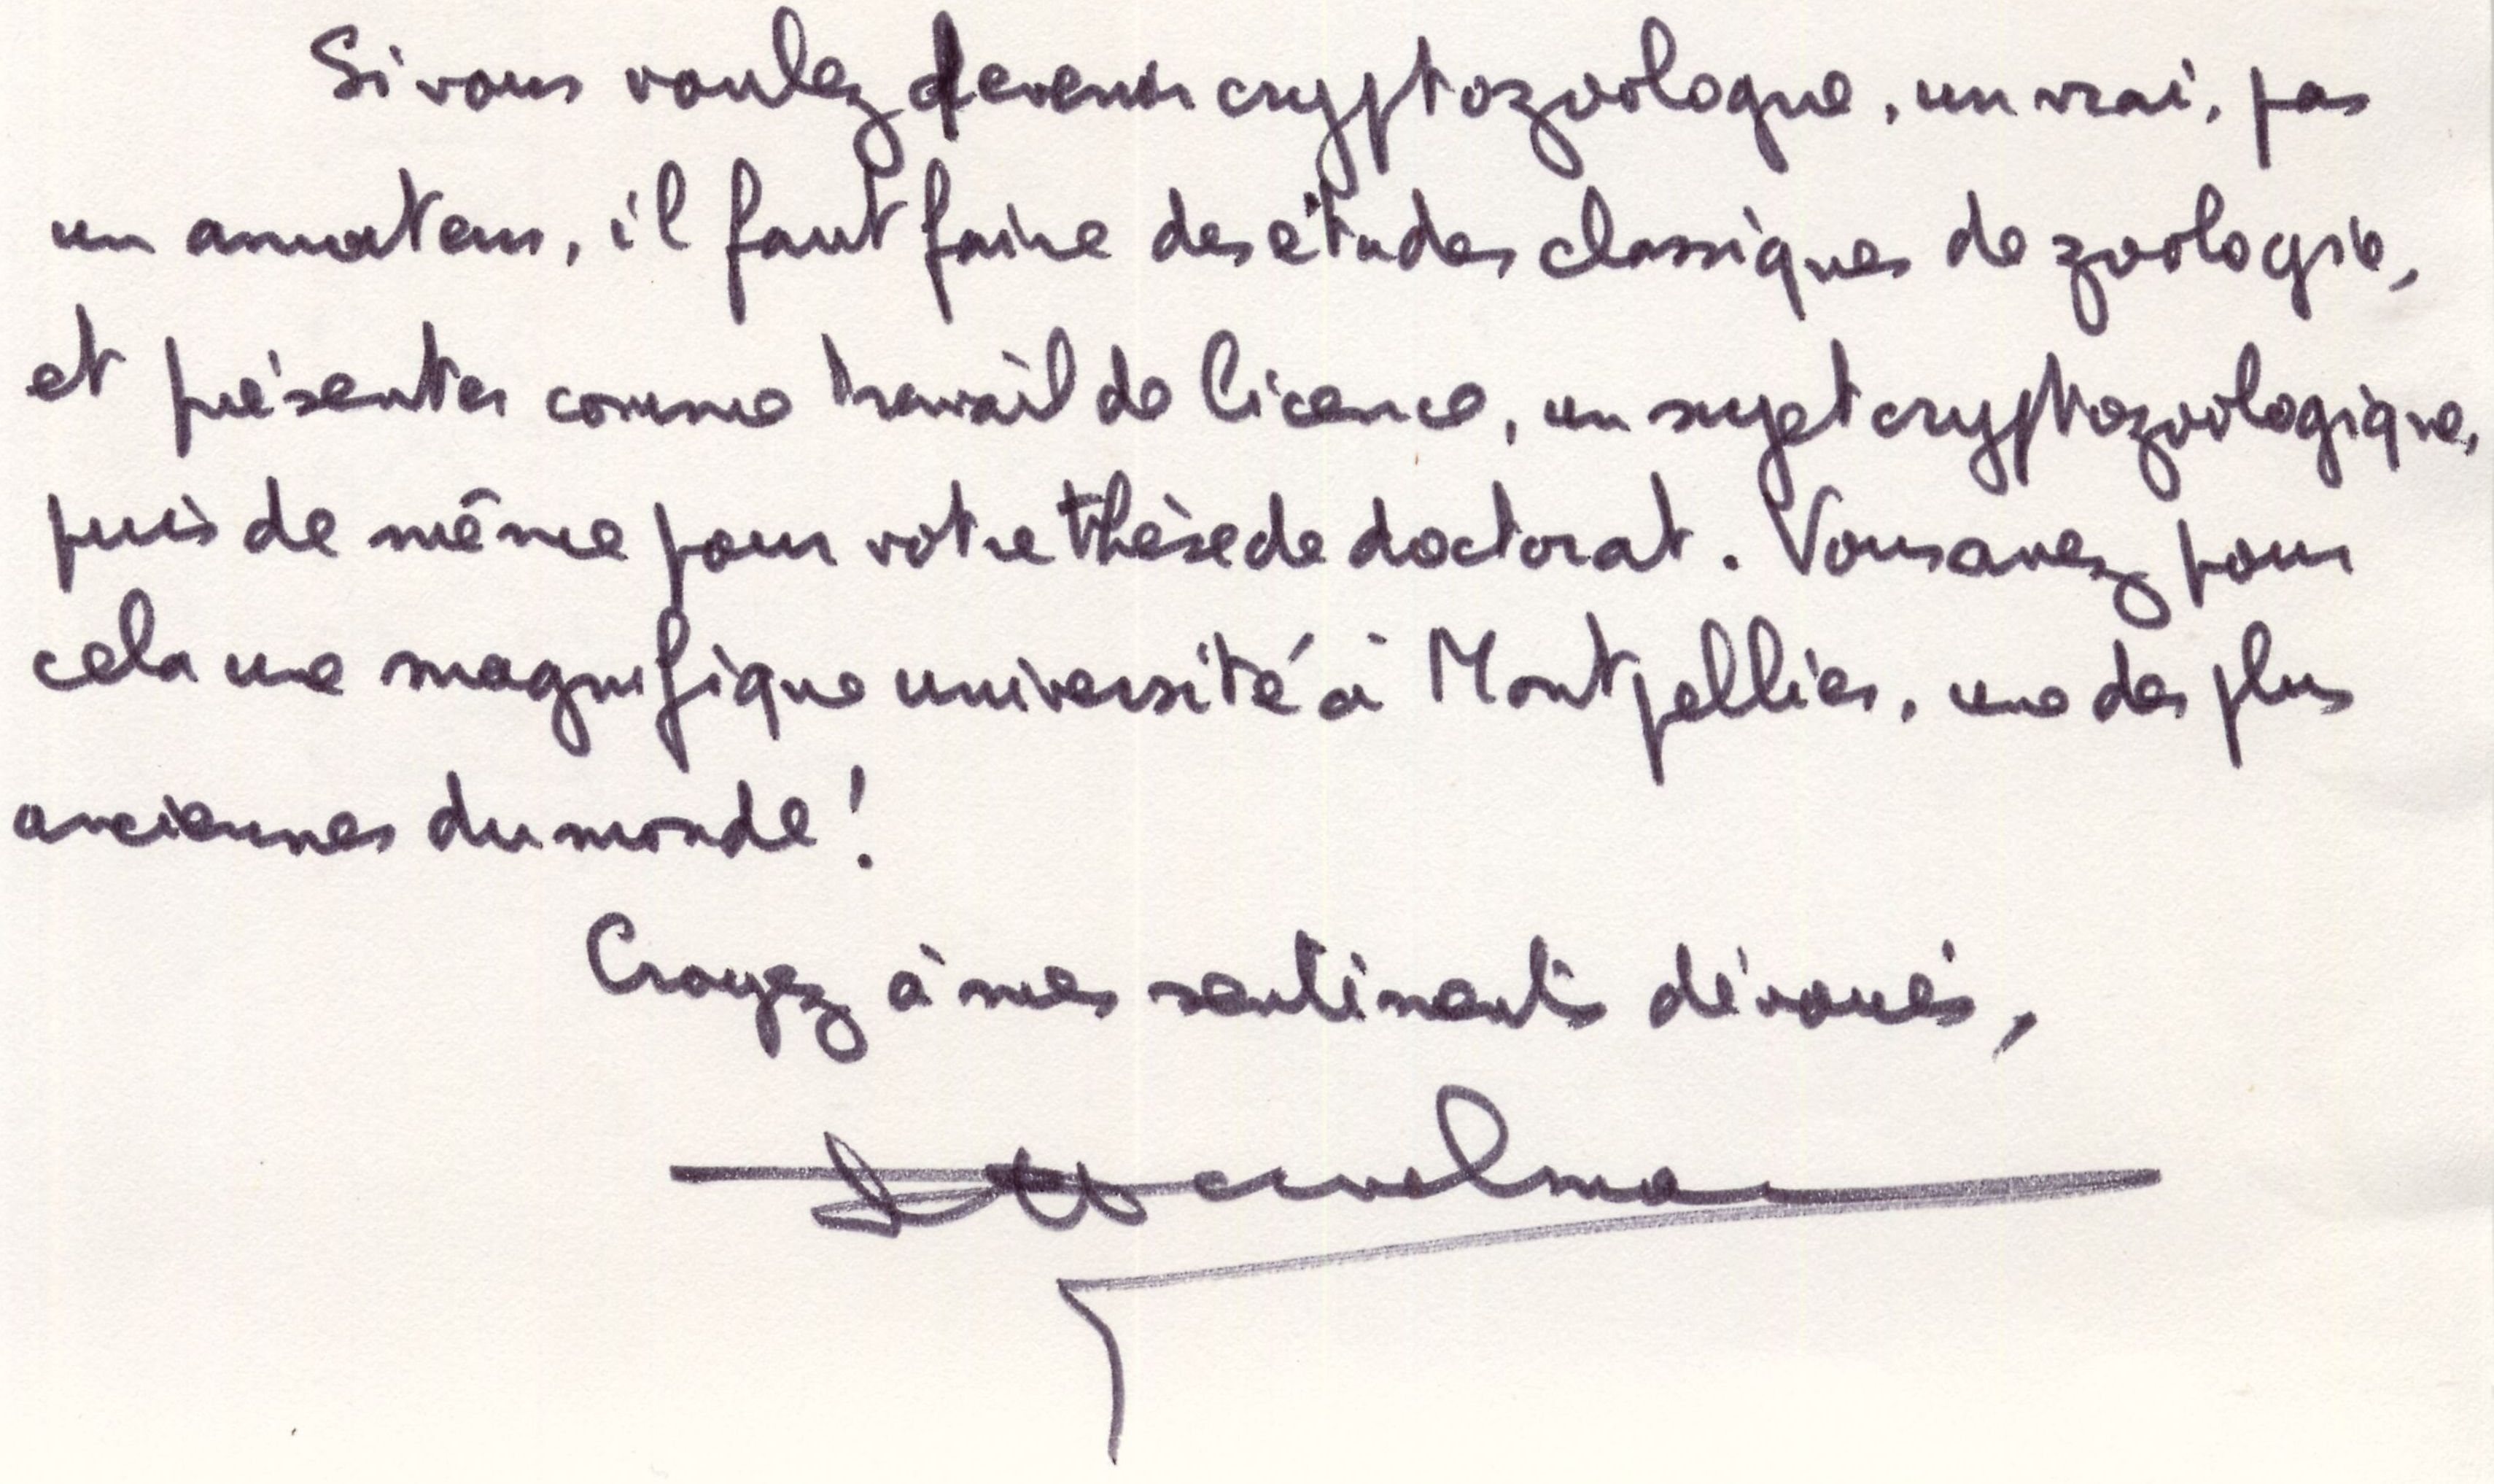 Si vous voulez devenir cryptozoologue, un vrai, pas
un amateur, il faut faire des études classiques de zoologie,
et présenter comme travail de licence, un sujet cryptozoologique,
puis de même pour votre thèse de doctorat. Vous avez pour
cela une magnifique université à Montpellier, une des plus
anciennes du monde !
Croyez à mes sentiments dévoués,